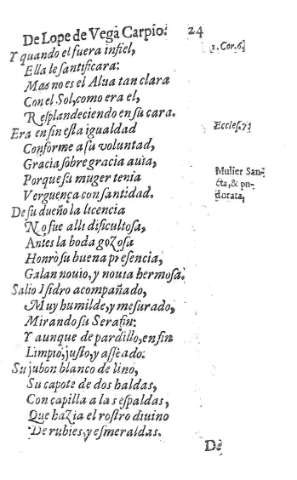 De Lope de Vega Carpio. 24
Y quando el fuera infiel,
Ella le santificara:
Mas no es el Alua tan clara
Con el Sol, como era el,
Resplandeciendo en su cara.
Era en fin esta igualdad
Conforme a su voluntad,
Gracia sobre gracia auia,
Porque su muger tenia
Verguença con santidad.
De su dueño la licencia
No fue alli dificultosa,
Antes la boda gozosa
Honrò su buena presencia,
Galan nouio, y nouia hermosa.
Salio Isidro acompañado,
Muy humilde, y mesurado,
Mirando su Serafin:
Y aunque de pardillo, en fin
Limpio, justo, y asseado.
Su jubon blanco de lino,
Su capote de dos haldas,
Con capilla a las espaldas,
Que hazia el rostro diuino
De rubies, y esmeraldas.
De
1. Cor. 6.
Eccles. 7.
Mulier San-
cta, & pu-
dorata,